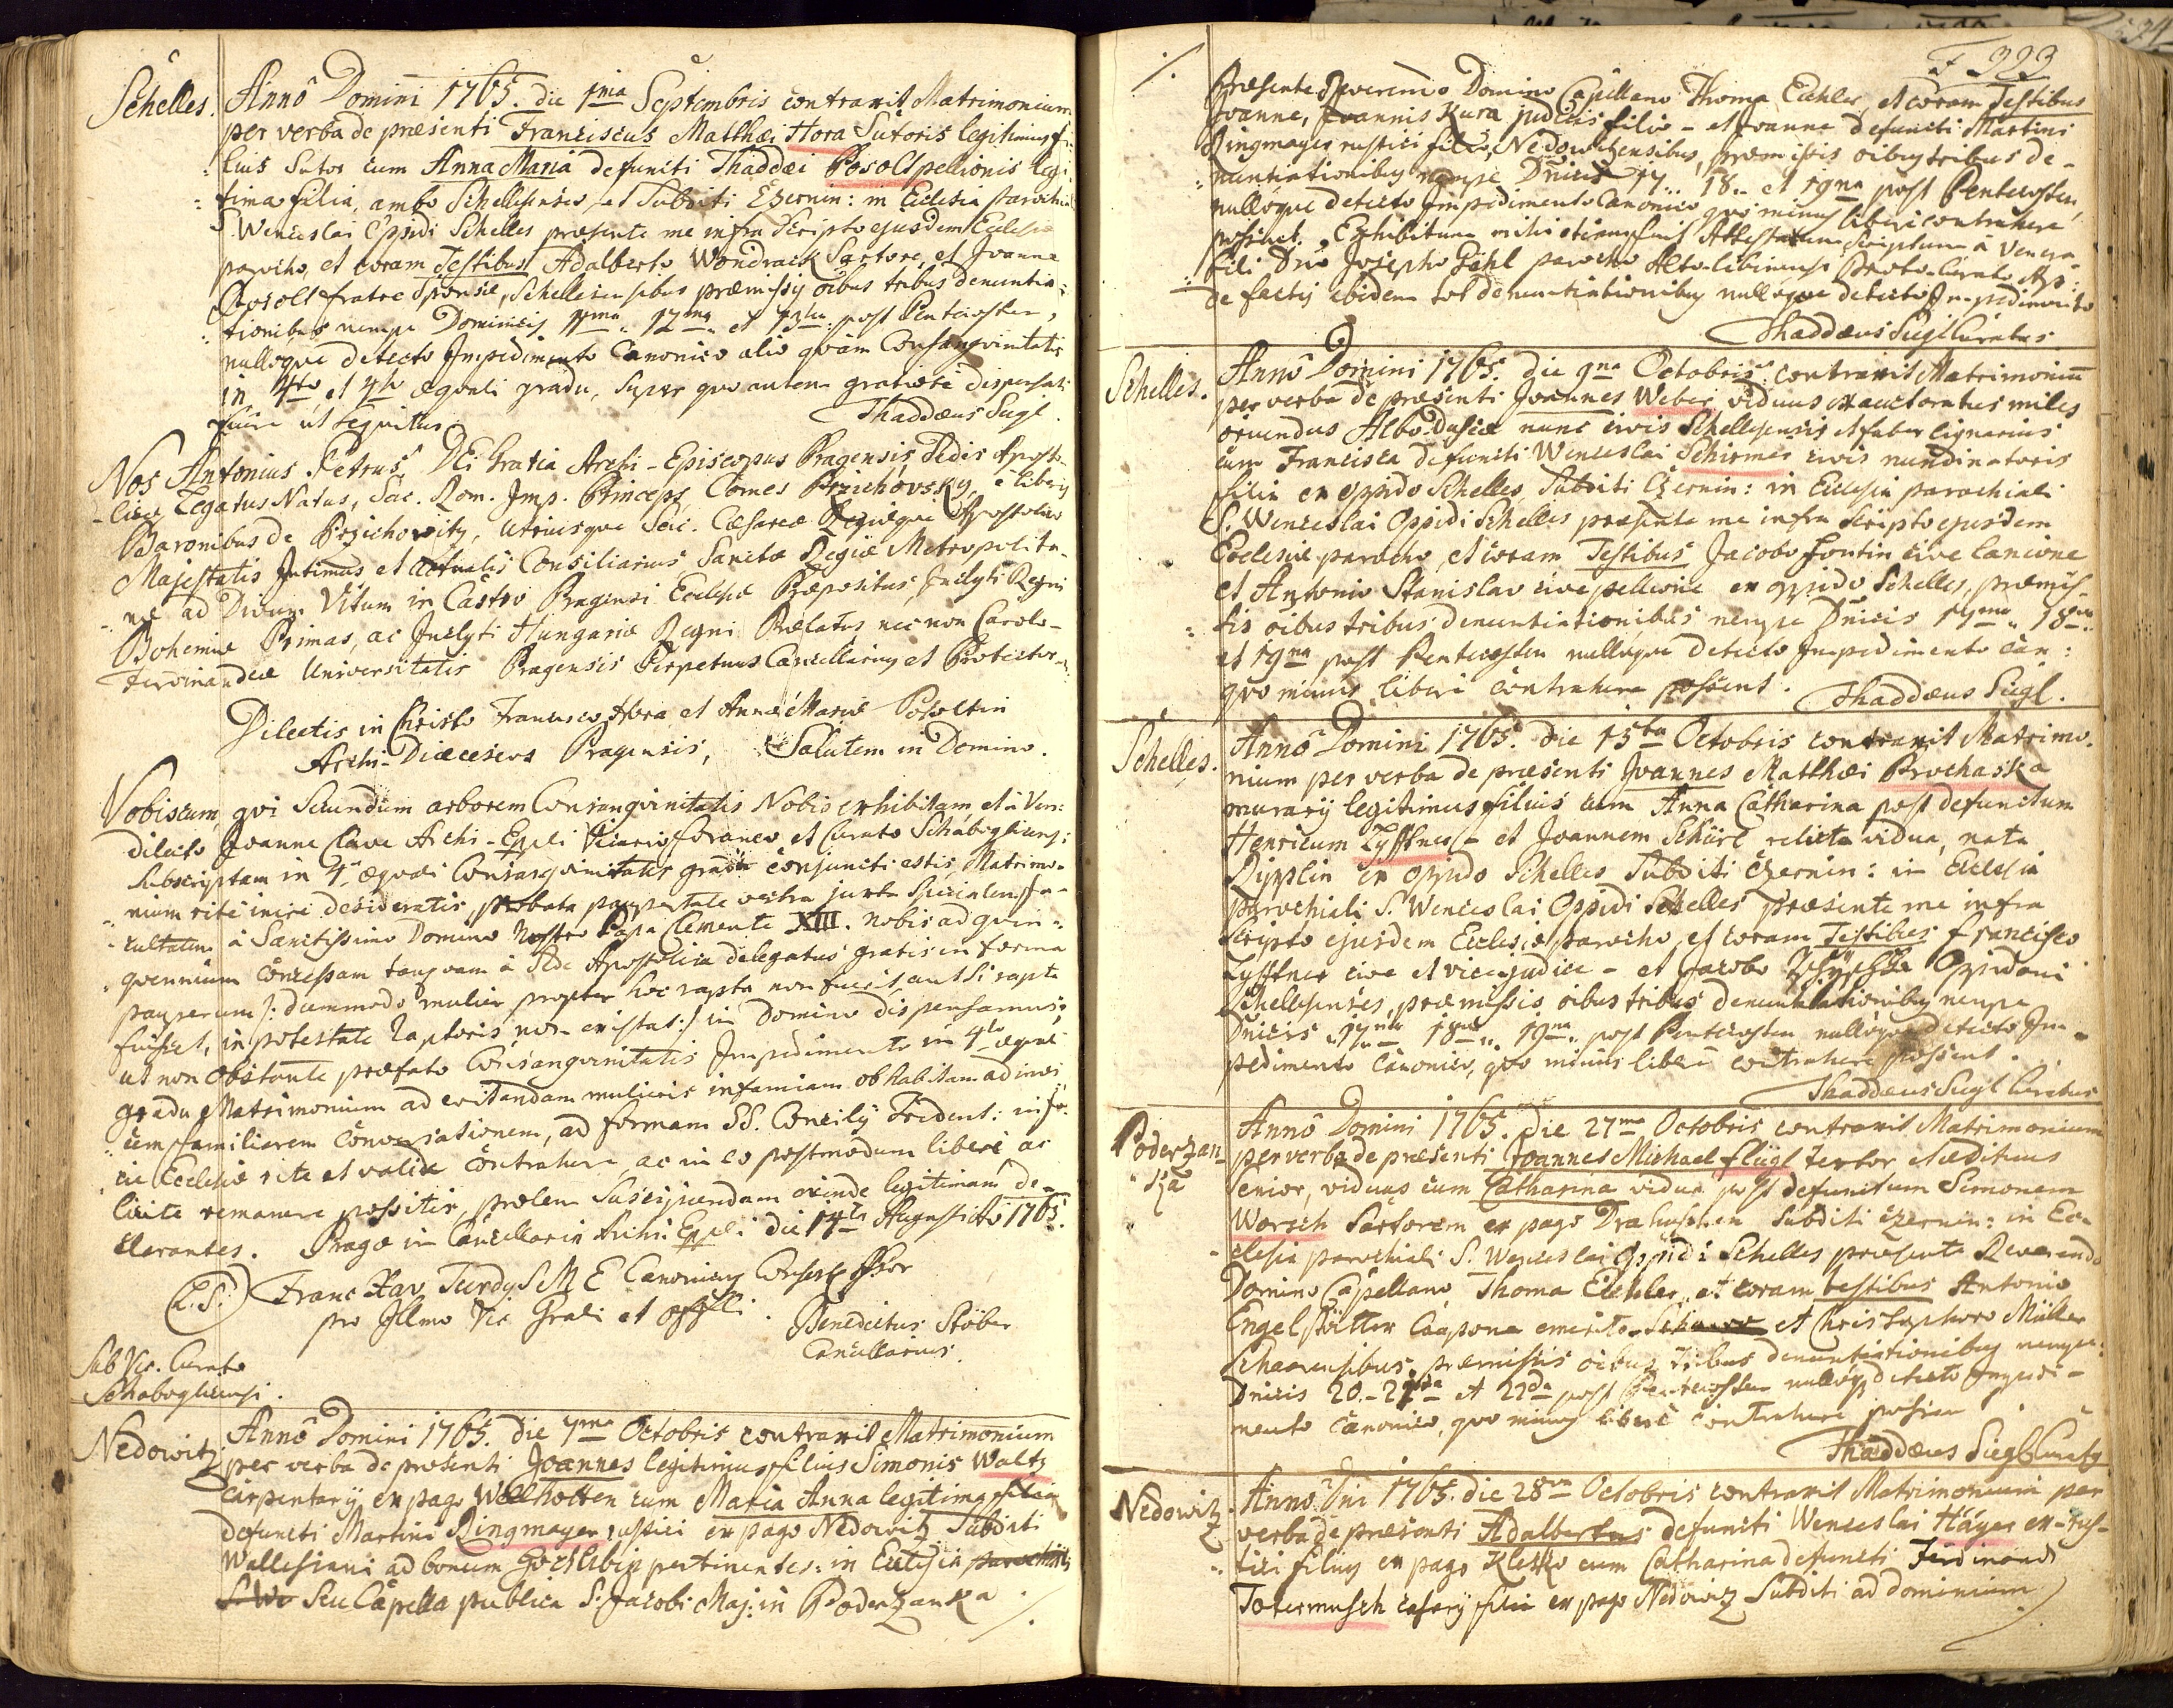 Schelles.
Annô Domini 1765. die 1ma Septembris contraxit Matrimonium
per verba de præsenti Franciscus Matthæi Hora Sutoris legitimus fi-
lius Sutor cum Anna Maria defuncti Thaddæi Posolt pellionis legi-
tima filia, ambo Schellesenses, et Subditi Czernin: in Ecclesia parochia
S. Wenceslai Oppidi Schelles præsente me infra Scripto ejusdem Ecclesiæ
parocho, et coram Testibus Adalberto Wondrack Sartore, et Joanne
Posolt fratre Sponsæ, Schellesensibus præmissis oibus tribus denuntia-
tionibus nempe Dominicis 11ma 12ma et 13tia post Pentecosten,
nullôque detecto Impedimento Canonico alio quàm Consanguinitatis
in 4to et 4to æquali gradu, super quo autem gratiosè dispensati
fuêre ut sequitur.
Thaddæus Sugl.
Nos Antonius Petrus DEi Gratia Archi-Episcopus Pragensis, Sedis Aposto-
licæ Legatus Natus, Sac. Rom. Imp. Princeps, Comes Przichovsky, è liberis
Baronibus de Przichowitz, utriusque Sac. Cæsareæ Regiæque Apostolicæ
Majestatis Intimus et actualis Consiliarius Sanctæ Regiæ Metropolita-
næ ad Divum Vitum in Castro Pragensi Ecclesiæ Præpositus, Inclyti Regni
Bohemiæ Primas, ac Inclyti Hungariæ Regni Prælatus nec non Carolo-
Ferdinandeæ Universitatis Pragensis Perpetuus Cancellarius et Protector.
Dilectis in Christo Francisco Hora et Annæ Mariæ Posoltin
Archi-Diæceseos Pragensis, Salutem in Domino.
Vobiscum, qui Secundum arborem Consanguinitatis Nobis exhibitam, et à Ven:
dilecto Joanne Clave Archi-Eppli Vicario foraneo et Curato Schabogliensi
Subscriptam in 4to æquali Consanguinitatis gradu conjuncti estis, Matrimo-
nium ritè inire desideratis, probata paupertate vestra juxta Specialem fa-
cultatem à Sanctissimo Domino Nostro Papa Clemente XIII. nobis ad quin-
quennium concessam tanquam à Sede Apostolica delegatus gratis in forma
pauperum /: dummodo mulier propter hoc rapta non fuerit, aut si rapta
fuisset, in potestate raptoris non existat :/ in Domino dispensamus;
ut non obstante præfato Consanguinitatis Impedimento in 4to æquali
gradu Matrimonium ad evitandam mulieris infamiam ob habitam ad invi-
cem familiarem conversationem, ad formam SS. Concilij Trident: in fa-
cie Ecclesiæ rite et valide contrahere, ac in eo postmodum liberè ac
licite remanere possitis, prolem Suscipiendam exinde legitimam de-
clarantes. Pragæ in Cancellaria Archi Eppli die 14ta Augusti Aô 1765.
(L.S.) Franc Xav Turdy S M E Canonicus Consist
pro Illmo Vic Grali et offli.
Benedictus Stöber
Cancellarius.
Sub Vic. Curato
Schabogliensi.
Nedowitz
Annô Domini 1765. die 7ma Octobris contraxit Matrimonium
per verba de præsenti Joannes legitimus filius Simonis Waltz
Carpentarij ex pago Wellhotten cum Maria Anna legitima filia
defuncti Martini Ringmayer rustici ex pago Nedowitz Subditi
Wallesiani ad bonum Hochlibin pertinentes: in Ecclesia parochiali
S. We Seu Capella publica S. Jacobi Maj: in Poderzanka
./.
F 393
./.
Præsente Reverendo Domino Capellano Thoma Eichler, et coram Testibus
Joanne, Joannis Kura judicis filio - et Joanne defuncti Martini
Ringmayer rustici filio, Nedowitzensibus, præmissis oibus tribus de-
nuntiationibus nempe Dnicis 17. 18. et 19na post Pentecosten,
nullôque detecto Impedimento Canonico quò minus liberi contrahere
possint. Exhibitum mihi etiam fuit Attestatum Scriptum à Venera-
bili Dno Josepho Göhl parocho Alto-libinensi
de factis ibidem tot denuntiationibus nullôque detecto Impedimento
Thaddæus Sugl Curatus
Schelles.
Annô Domini 1765. die 9na Octobris contraxit Matrimoniu
per verba de præsenti Joannes Weber viduus exauctoratus miles
oriundus Albo-Dusiæ nunc civis Schellesensis et faber lignarius
cum Francisca defuncti Wenceslai Schirmer civis nundinatoris
filia ex oppido Schelles, Subditi Czernin: in Ecclesia parochiali
S. Wenceslai Oppidi Schelles præsente me infra Scripto ejusdem
Ecclesiæ parocho, et coram Testibus Jacobo Fontin cive lanione
et Antonio Stanislav cive pellione ex oppido Schelles, præmis-
sis oibus tribus denuntiationibus nempe Dnicis 17ma 18va
et 19na post Pentecosten nullôque detecto Impedimento Can:
quo minus liberi contrahere possent.
Thaddæus Sugl.
Schelles.
Annô Domini 1765. die 15ta Octobris contraxit Matrimo-
nium per verba de præsenti Joannes Matthæi Prochaska
murarij legitimus filius cum Anna Catharina post defunctum
Henricum Lyfftner - et Joannem Schürl relicta vidua, nata
Ripplin ex oppido Schelles Subditi Czernin: in Ecclesia
parochiali S. Wenceslai Oppidi Schelles præsente me infra
Scripto ejusdem Ecclesiæ parocho, et coram Testibus Francisco
Lyfftner cive et vice judice - et Jacobo Oppidani
Schellesenses, præmissis oibus tribus denuntiationibus nempe
Dnicis 17ma 18va 19na post Pentecosten nullôque detecto Im-
pedimento Canonico, quo minus liberi contrahere possent.
Thaddæus Sugl Curatus
Poderzan-
Annô Domini 1765. die 27ma Octobris contraxit Matrimonium
per verba de præsenti Joannes Michael Flügl textor et ædituus
Senior, viduus cum Catharina vidua post defunctum Simonem
Worsch Sartorem ex pago Drahuschen Subditi Czernin: in Ec-
clesia parochiali S. Wenceslai Oppidi Schelles præsente Reverendo
Domino Capellano Thoma Eichler, et coram testibus Antonio
Engelstätter Caupone emerito et Christophoro Müller
præmissis oibus tribus denuntiationibus nempe:
Dnicis 20. - 21ma et 22da post Pentecosten nullôque detecto Impedi-
mento Canonico, quo minus liberè contrahere possent
Thaddæus Siegl Curatus
Nedowitz.
Anno Dni 1765. die 28va Octobris contraxit Matrimonium per
verba de præsenti Adalbertus defuncti Wenceslai Háyer ex-rus-
tici filius ex pago Klesko cum Catharina defuncti Ferdinandi
Totermusch casarij filia ex pago Nedowitz Subditi ad dominium